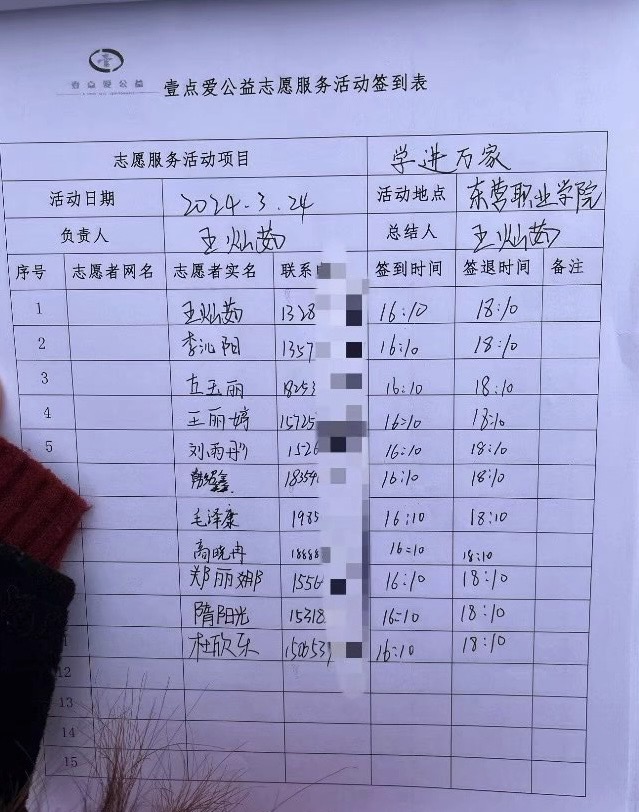 壹点爱公益
壹点爱公益志愿服务活动签到表
志愿服务活动项目 学进万家
活动日期 2024.3.24 活动地点 东营职业学院
负责人 王灿茹 总结人 王灿茹
序号 志愿者网名 志愿者实名 联系 签到时间 签退时间 备注
1 王灿茹 1328 16:10 18:10
2 李沁阳 1357 16:10 18:10
3 左玉丽 18253 16:10 18:10
4 王丽婷 15725 16:10 18:10
5 刘雨彤 1526 16:10 18:10
18354 16:10 18:10
毛泽康 1985 16:10 18:10
高晓冉 18888 16:10 18:10
郑丽娜 1556 16:10 18:10
隋阳光 15318 16:10 18:10
1 杜欣乐 150653 16:10 18:10
12
13
14
15